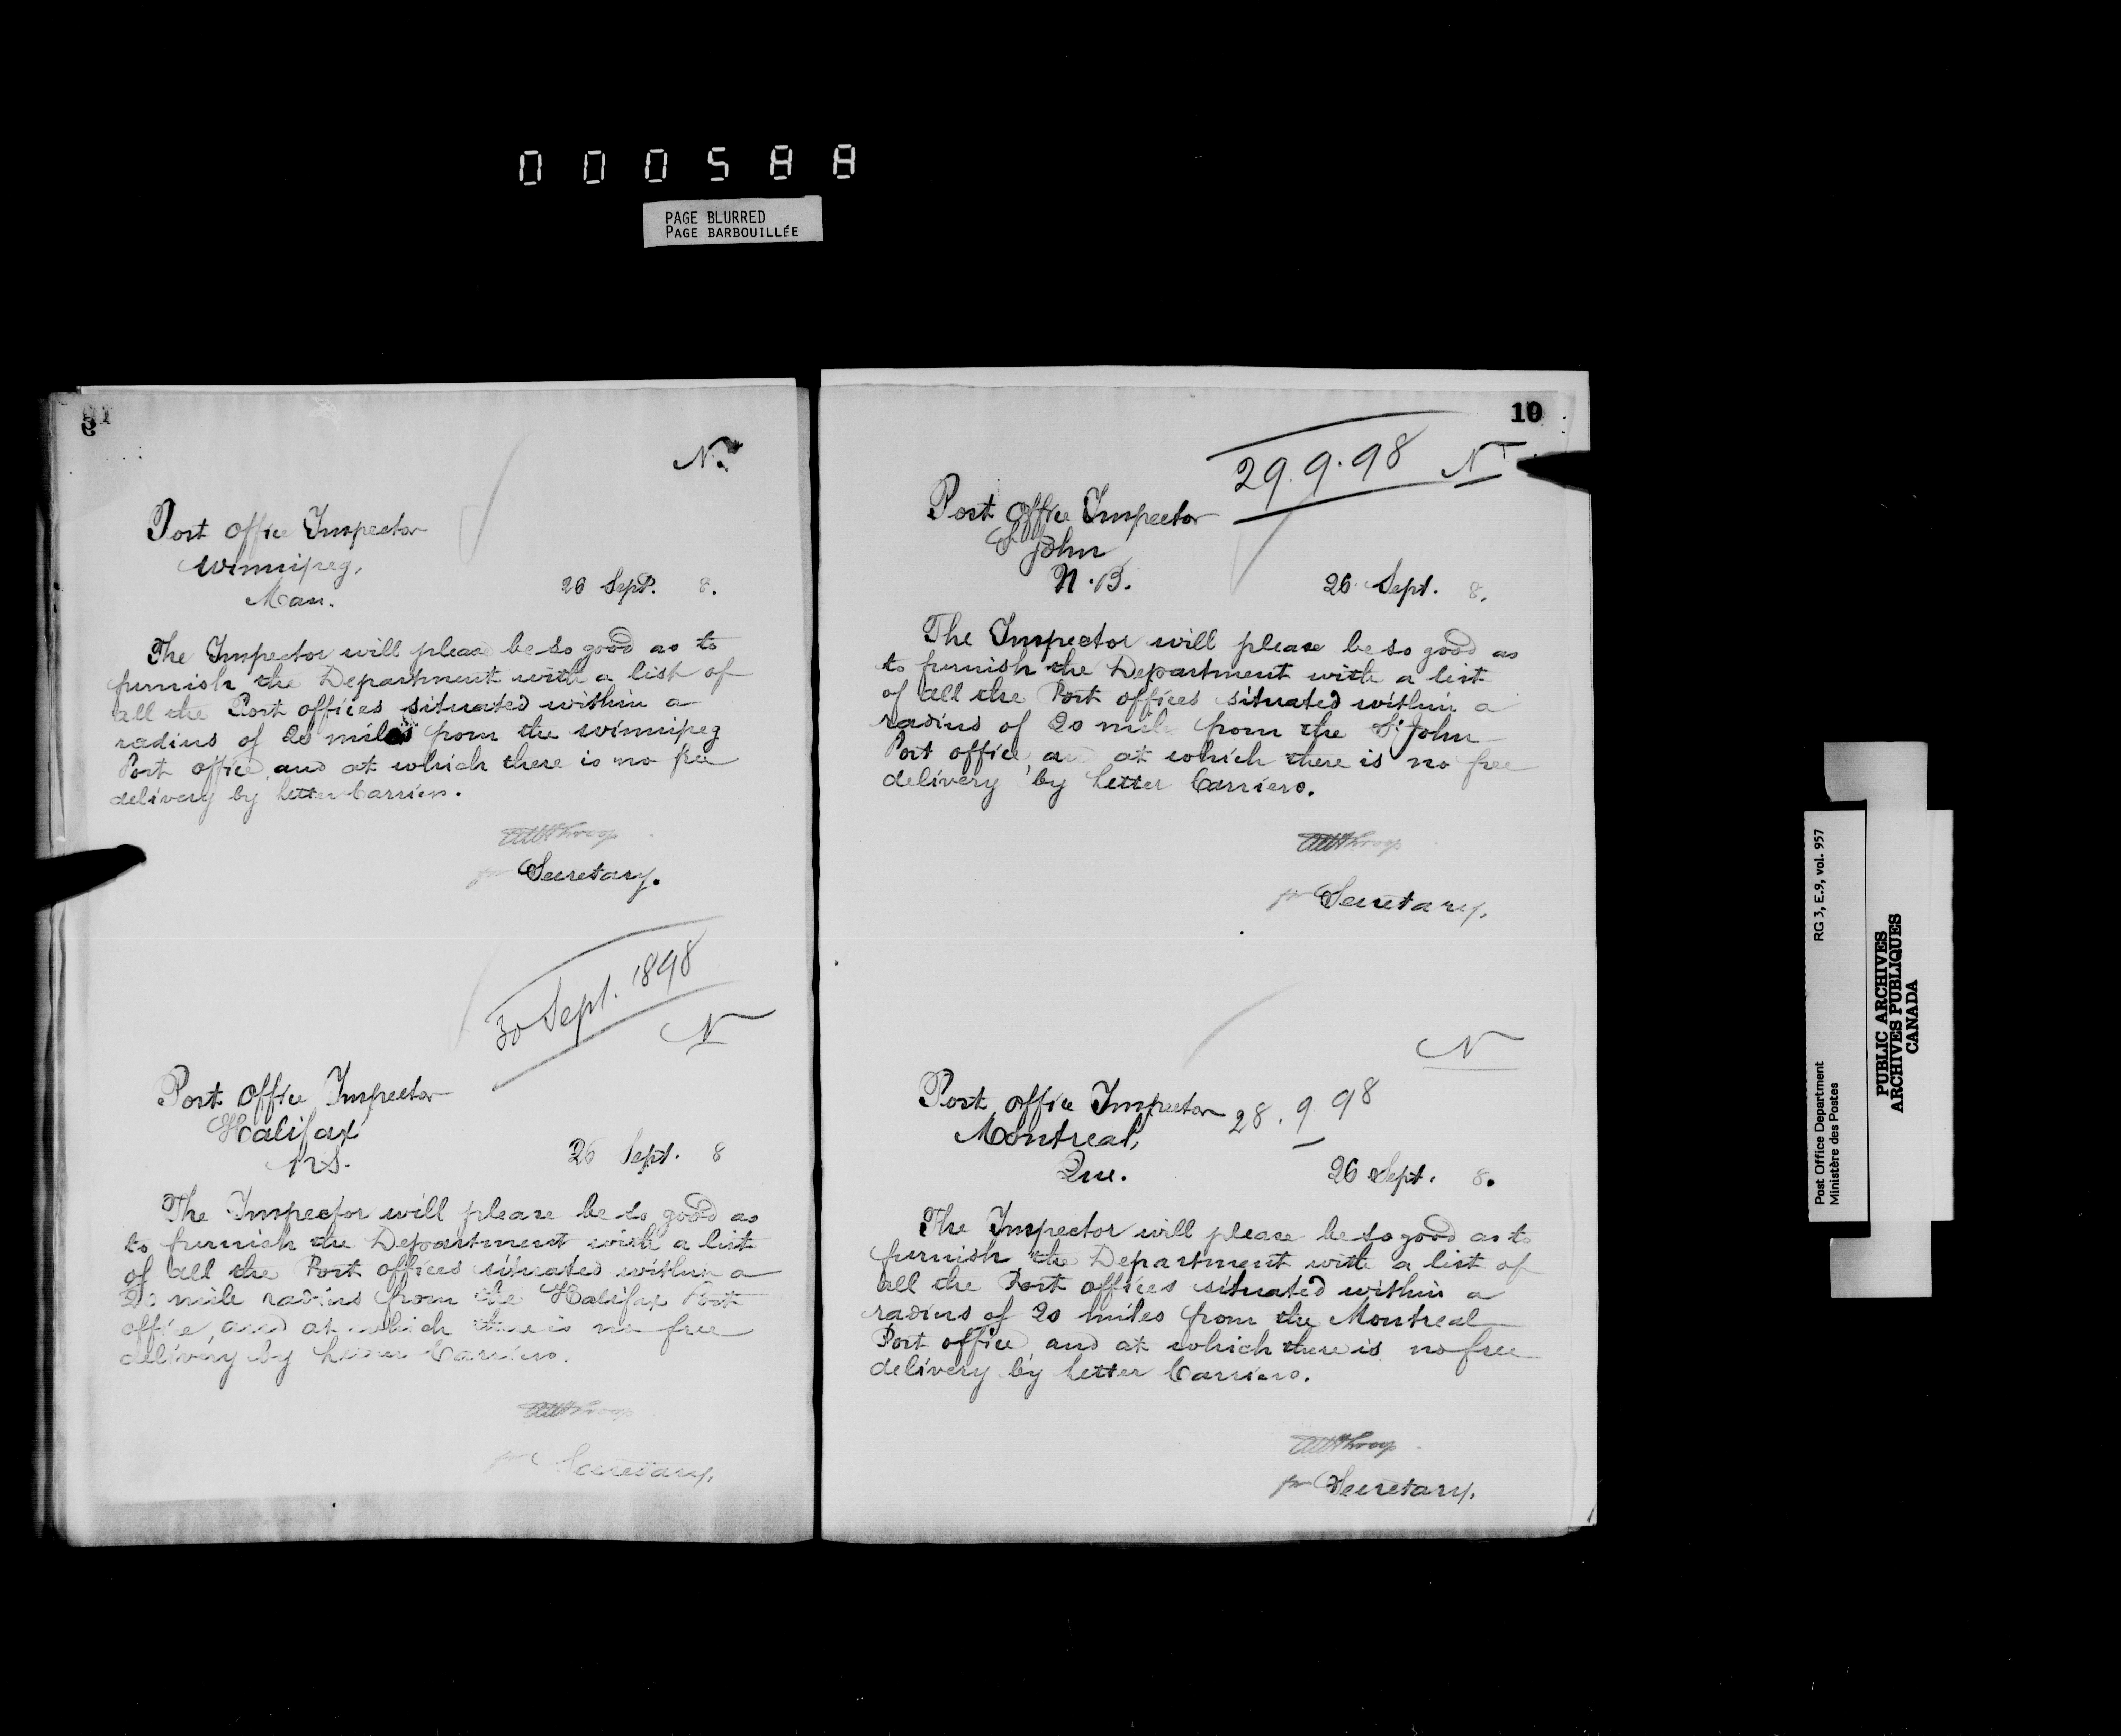 000588
PAGE BLURRED
PAGE BARBOUILLÉE
N
Post Office Inspector
Winnipeg,
Man.
26 Sept. 8.
The Inspector will please be so good as to
furnish the Department with a list of
all the Post offices situated within a
radius of 20 miles from the Winnipeg
Post office, and at which there is no free
delivery by Letter Carriers.
pr Secretary.
30 Sept. 1898
N
Post Office Inspector
Halifax
N.S.
26 Sept. 8
The Inspector will please be so good as
to furnish the Department with a list
of all the Post offices situated within a
20 mile radius from the Halifax Post
office, and at which there is no free
delivery by Letter Carriers.
pr Secretary.
10
29.9.98 N
Post Office Inspector
St John
N.B.
26 Sept. 8.
The Inspector will please be so good as
to furnish the Department with a list
of all the Post offices situated within a
radius of 20 mile from the St John
Post office, and at which there is no free
delivery by Letter Carriers.
pr Secretary.
N
Post Office Inspector 28.9.98
Montreal,
Que.
26 Sept. 8.
The Inspector will please be so good as to
furnish the Department with a list of
all the Post offices situated within a
radius of 20 miles from the Montreal
Post office, and at which there is no free
delivery by Letter Carriers.
pr Secretary.
Post Office Department RG 3, E.9, vol. 957
Ministère des Postes
PUBLIC ARCHIVES
ARCHIVES PUBLIQUES
CANADA